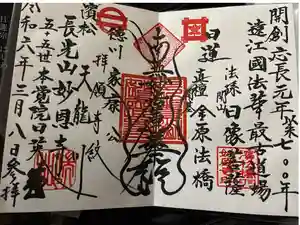 開創 応長元年 以来 七〇〇年
遠江國法華最古道場
日蓮 直檀 金原法橋
法孫 開山 日像菩薩
南無妙法蓮華経
徳川家康公
拝領寺紋
濱松 天龍川
長光山妙恩寺
五十五世本覚院日
令和六年三月八日参拝